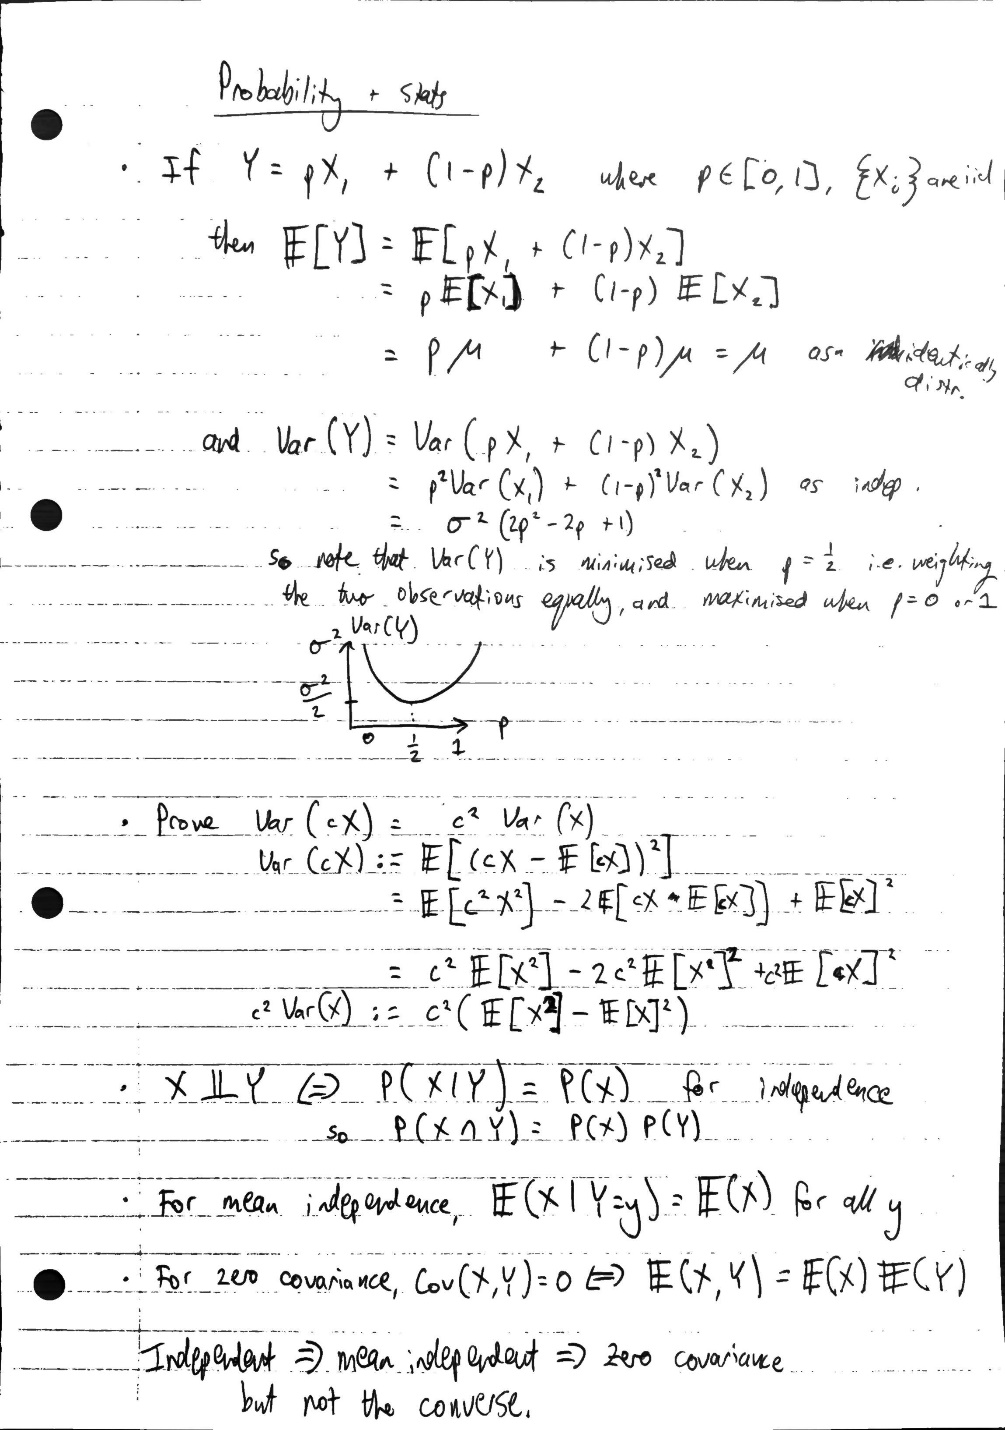 Probability + Stats
· If Y = pX₁ + (1-p)X₂ where p∈[0,1], {Xᵢ} are iid
then 𝔼[Y] = 𝔼[pX₁ + (1-p)X₂]
= p𝔼[X₁] + (1-p) 𝔼[X₂]
= pμ + (1-p)μ = μ as identically
distr.
and Var(Y) = Var(pX₁ + (1-p)X₂)
= p²Var(X₁) + (1-p)²Var(X₂) as indep.
= σ²(2p²-2p+1)
so note that Var(Y) is minimised when p = 1/2 i.e. weighting
the two observations equally, and maximised when p=0 or 1
σ² Var(Y)
σ²/2
p
0 1/2 1
· Prove Var(cX) = c² Var(X)
Var(cX) := 𝔼[(cX - 𝔼[cX])²]
= 𝔼[c²X²] - 2𝔼[cX 𝔼[cX]] + 𝔼[cX]²
= c² 𝔼[X²] - 2c²𝔼[X]² + c²𝔼[X]²
c² Var(X) := c²(𝔼[X²] - 𝔼[X]²)
· X ⫫ Y ⇔ P(X|Y) = P(X) for independence
so P(X∩Y) = P(X) P(Y)
· For mean independence, 𝔼(X|Y=y) = 𝔼(X) for all y
· For zero covariance, Cov(X,Y)=0 ⇔ 𝔼(X,Y) = 𝔼(X)𝔼(Y)
Independent ⇒ mean independent ⇒ zero covariance
but not the converse.